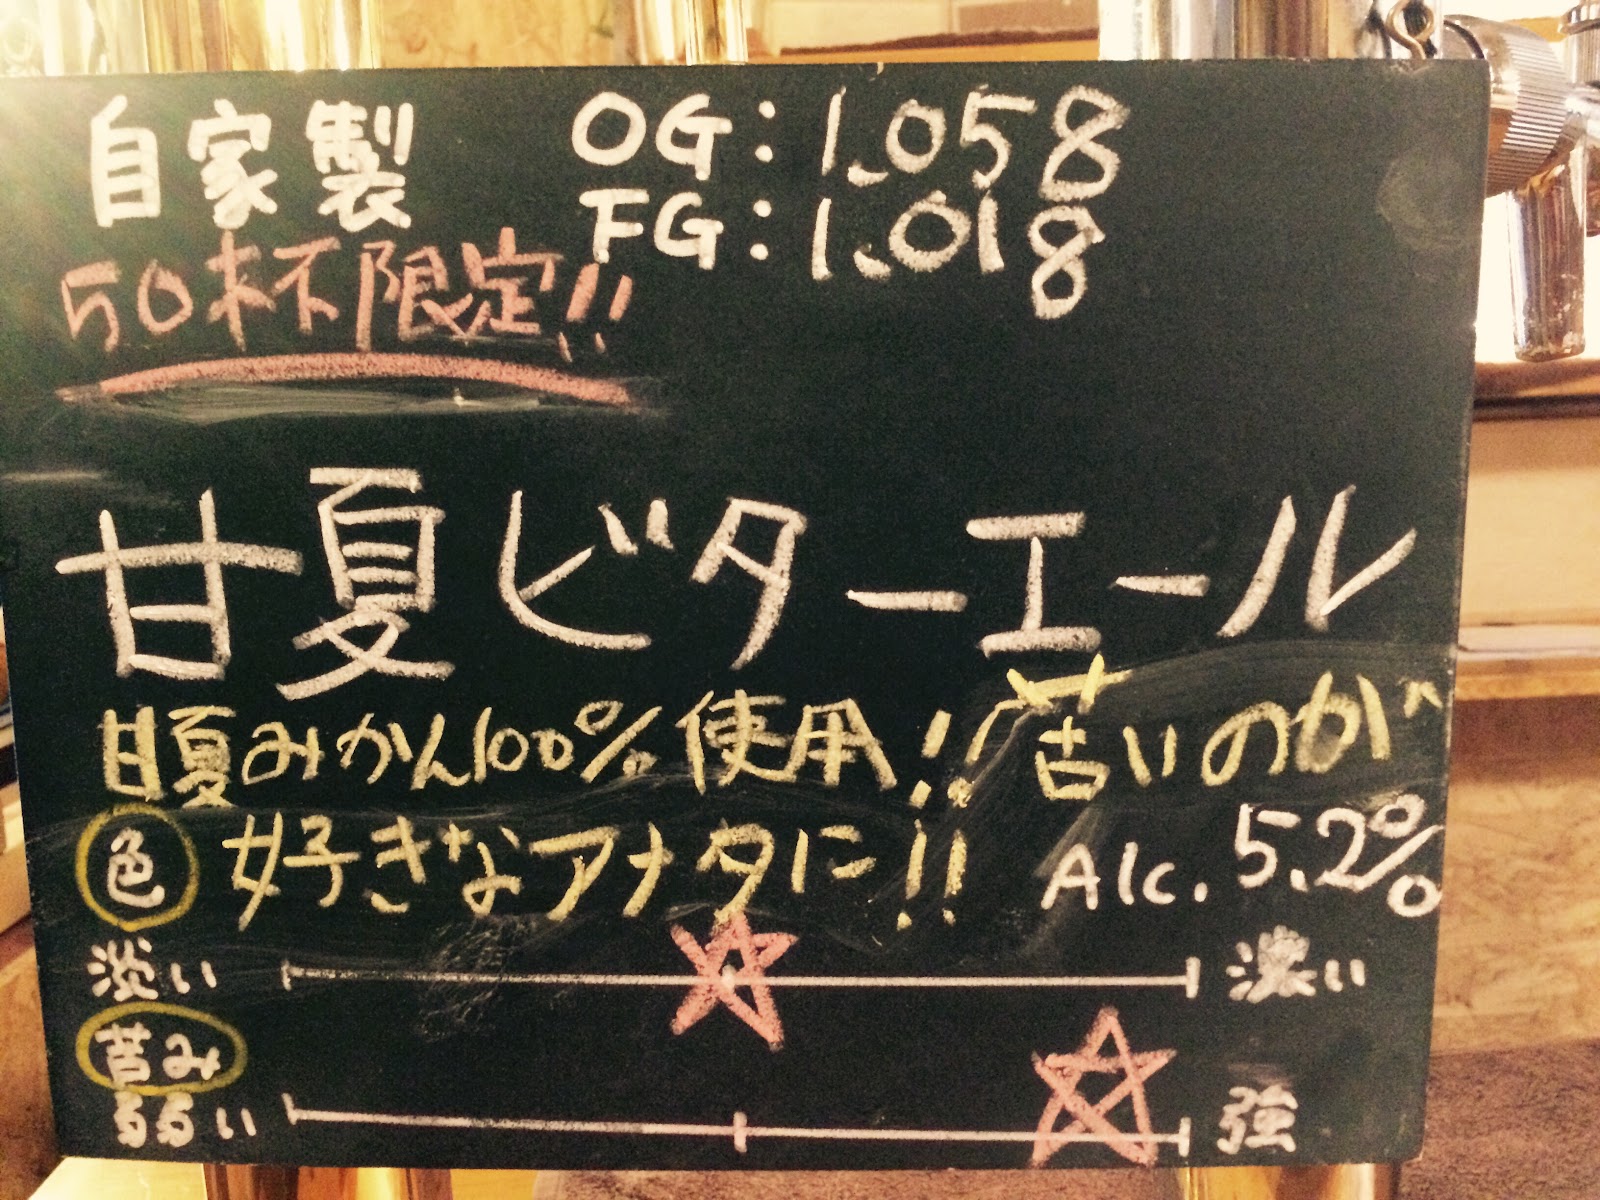 自家製
OG:1.058
FG:1.018
50杯限定!!
甘夏ビターエール
甘夏みかん100%使用!!苦いのが
好きなアナタに!!
Alc. 5.2%
色
淡い
濃い
苦み
弱い
強